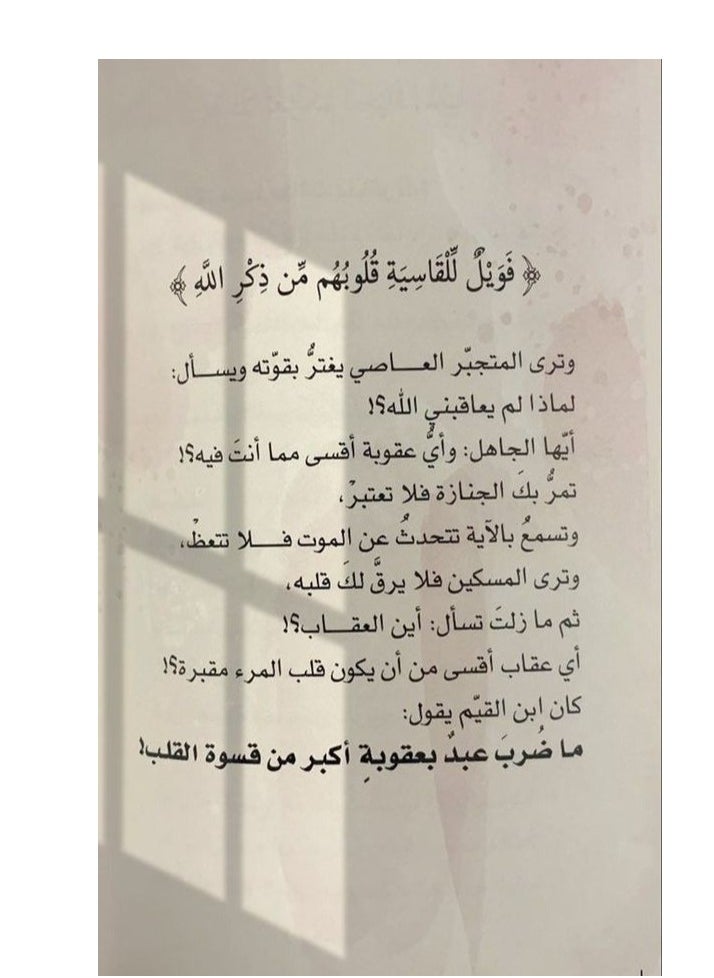 ﴿ فَوَيْلٌ لِّلْقَاسِيَةِ قُلُوبُهُم مِّن ذِكْرِ اللَّهِ ﴾
وترى المتجبّر العـــاصي يغترُّ بقوّته ويســأل:
لماذا لم يعاقبني الله؟!
أيّها الجاهل: وأيُّ عقوبة أقسى مما أنتَ فيه؟!
تمرُّ بكَ الجنازة فلا تعتبرْ،
وتسمعُ بالآية تتحدثُ عن الموت فـــلا تتعظْ،
وترى المسكين فلا يرقَّ لكَ قلبه،
ثم ما زلتَ تسأل: أين العقـــاب؟!
أي عقاب أقسى من أن يكون قلب المرء مقبرة؟!
كان ابن القيّم يقول:
ما ضُربَ عبدٌ بعقوبةٍ أكبر من قسوة القلب!